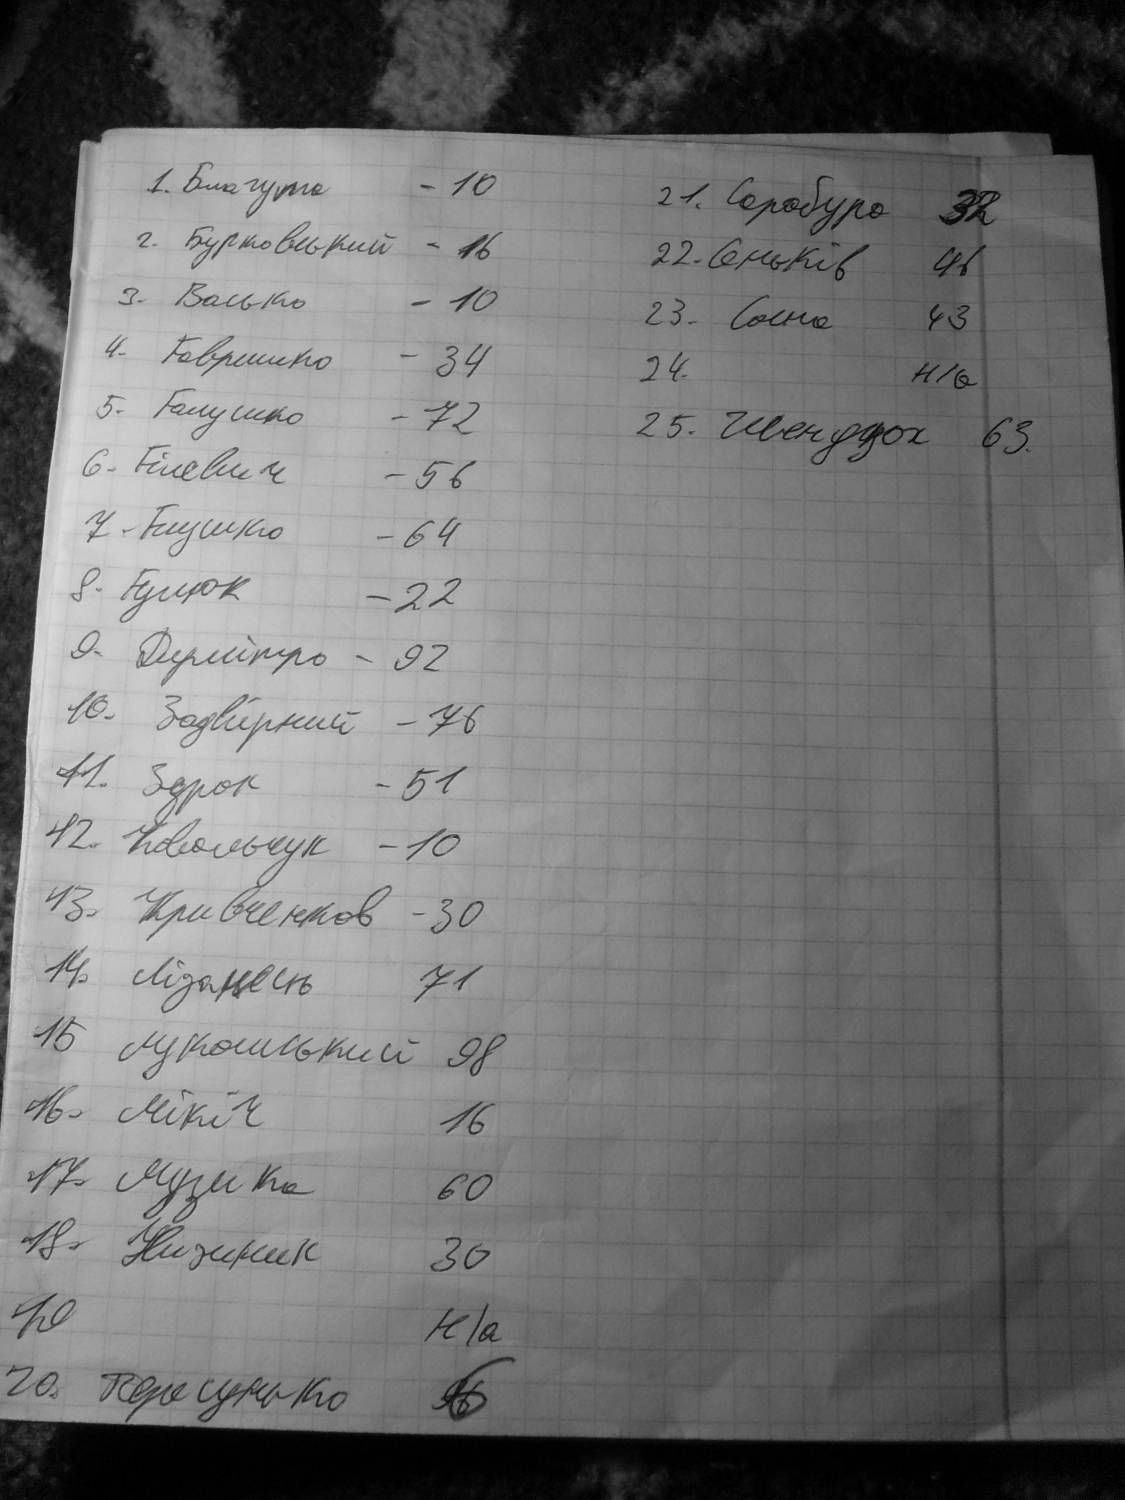 1. Благута - 10
2. Бурковський - 16
3. Васько - 10
4. Гавришко - 34
5. Галушко - 72
6. Гілевич - 56
7. Глушко - 64
8. Гулюк - 22
9. Думітро - 92
10. Задвірний - 76
11. Здрок - 51
12. Ковальчук - 10
13. Кривченков - 30
14. Лізанець 71
15 Лукашський 98
16. Мікіч 16
17. Музика 60
18. Низиник 30
19 н/а
20. Парасунько
21. Сарабура 32
22. Сеньків 46
23. Сосна 43
24. н/а
25. Шендюх 63.